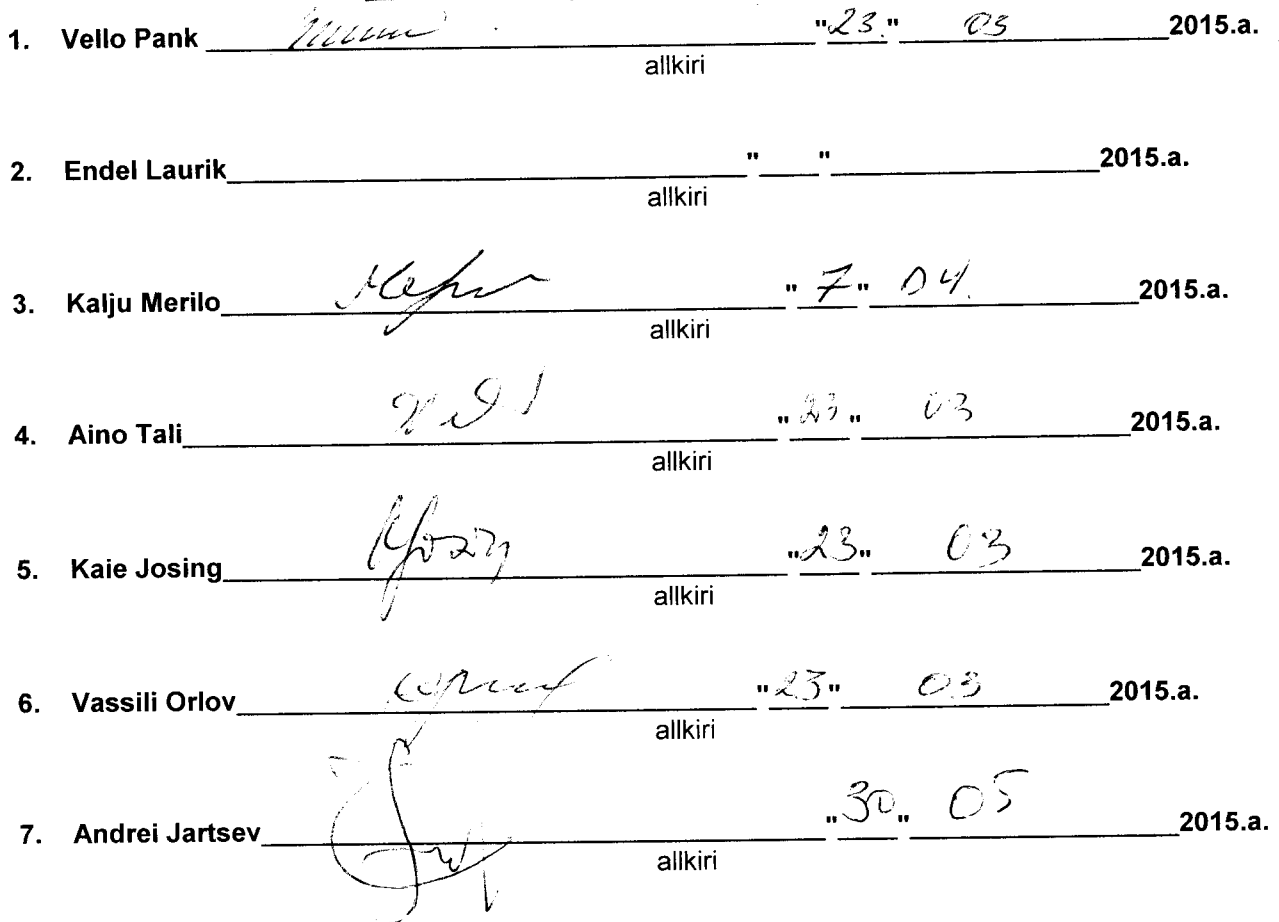 1. Vello Pank "23." 03 2015.a.
allkiri
2. Endel Laurik " " 2015.a.
allkiri
3. Kalju Merilo "7" 04. 2015.a.
allkiri
4. Aino Tali "23" 03 2015.a.
allkiri
5. Kaie Josing "23" 03 2015.a.
allkiri
6. Vassili Orlov "23" 03 2015.a.
allkiri
7. Andrei Jartsev "30" 05 2015.a.
allkiri